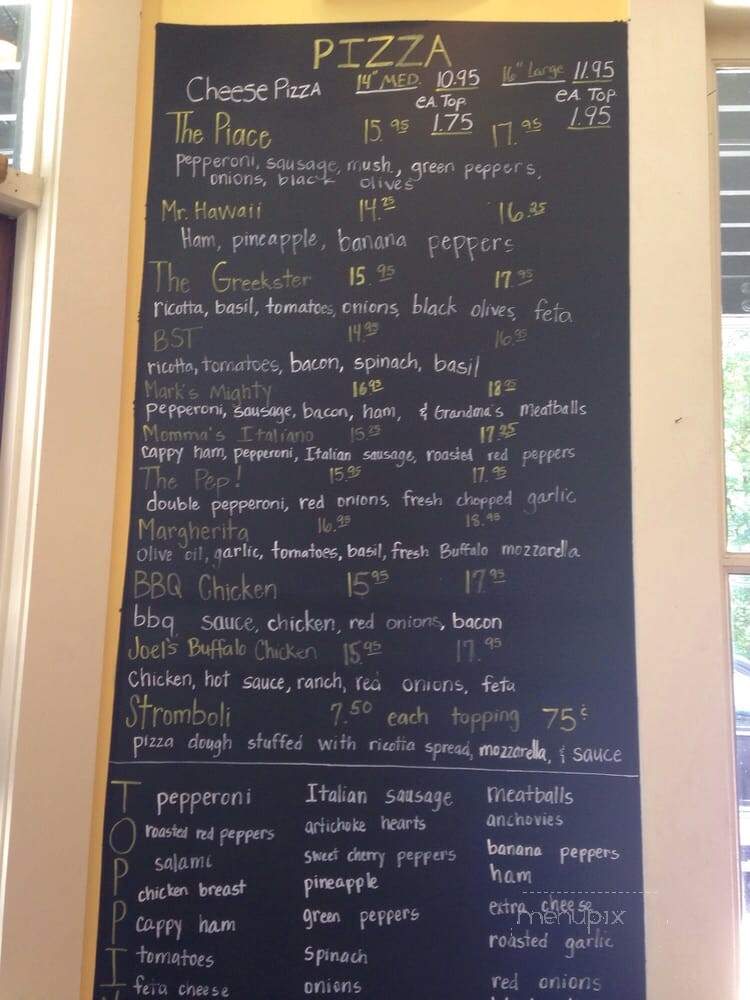 PIZZA
Cheese PIZZA 14" MED. 10.95 16" Large 11.95
EA. TOP. EA. TOP.
1.75 1.95
The Piace 15.95 17.95
pepperoni, sausage, mush., green peppers,
onions, black olives
Mr. Hawaii 14.25 16.25
Ham, pineapple, banana peppers
The Greekster 15.95 17.95
ricotta, basil, tomatoes, onions, black olives, feta
BST 14.95 16.95
ricotta, tomatoes, bacon, spinach, basil
Mark's Mighty 16.95 18.95
pepperoni, sausage, bacon, ham, & Grandma's meatballs
Momma's Italiano 15.25 17.25
Cappy ham, pepperoni, Italian sausage, roasted red peppers
The Pep! 15.95 17.95
double pepperoni, red onions, fresh chopped garlic
Margherita 16.95 18.95
Olive oil, garlic, tomatoes, basil, fresh Buffalo mozzarella
BBQ Chicken 15.95 17.95
bbq sauce, chicken, red onions, bacon
Joel's Buffalo Chicken 15.95 17.95
Chicken, hot sauce, ranch, red onions, feta
Stromboli 7.50 each topping 75¢
pizza dough stuffed with ricotta spread, mozzarella, & sauce
TOPPI
pepperoni Italian sausage meatballs
roasted red peppers artichoke hearts anchovies
salami sweet cherry peppers banana peppers
chicken breast pineapple ham
cappy ham green peppers extra cheese
menupix
tomatoes spinach roasted garlic
feta cheese onions red onions